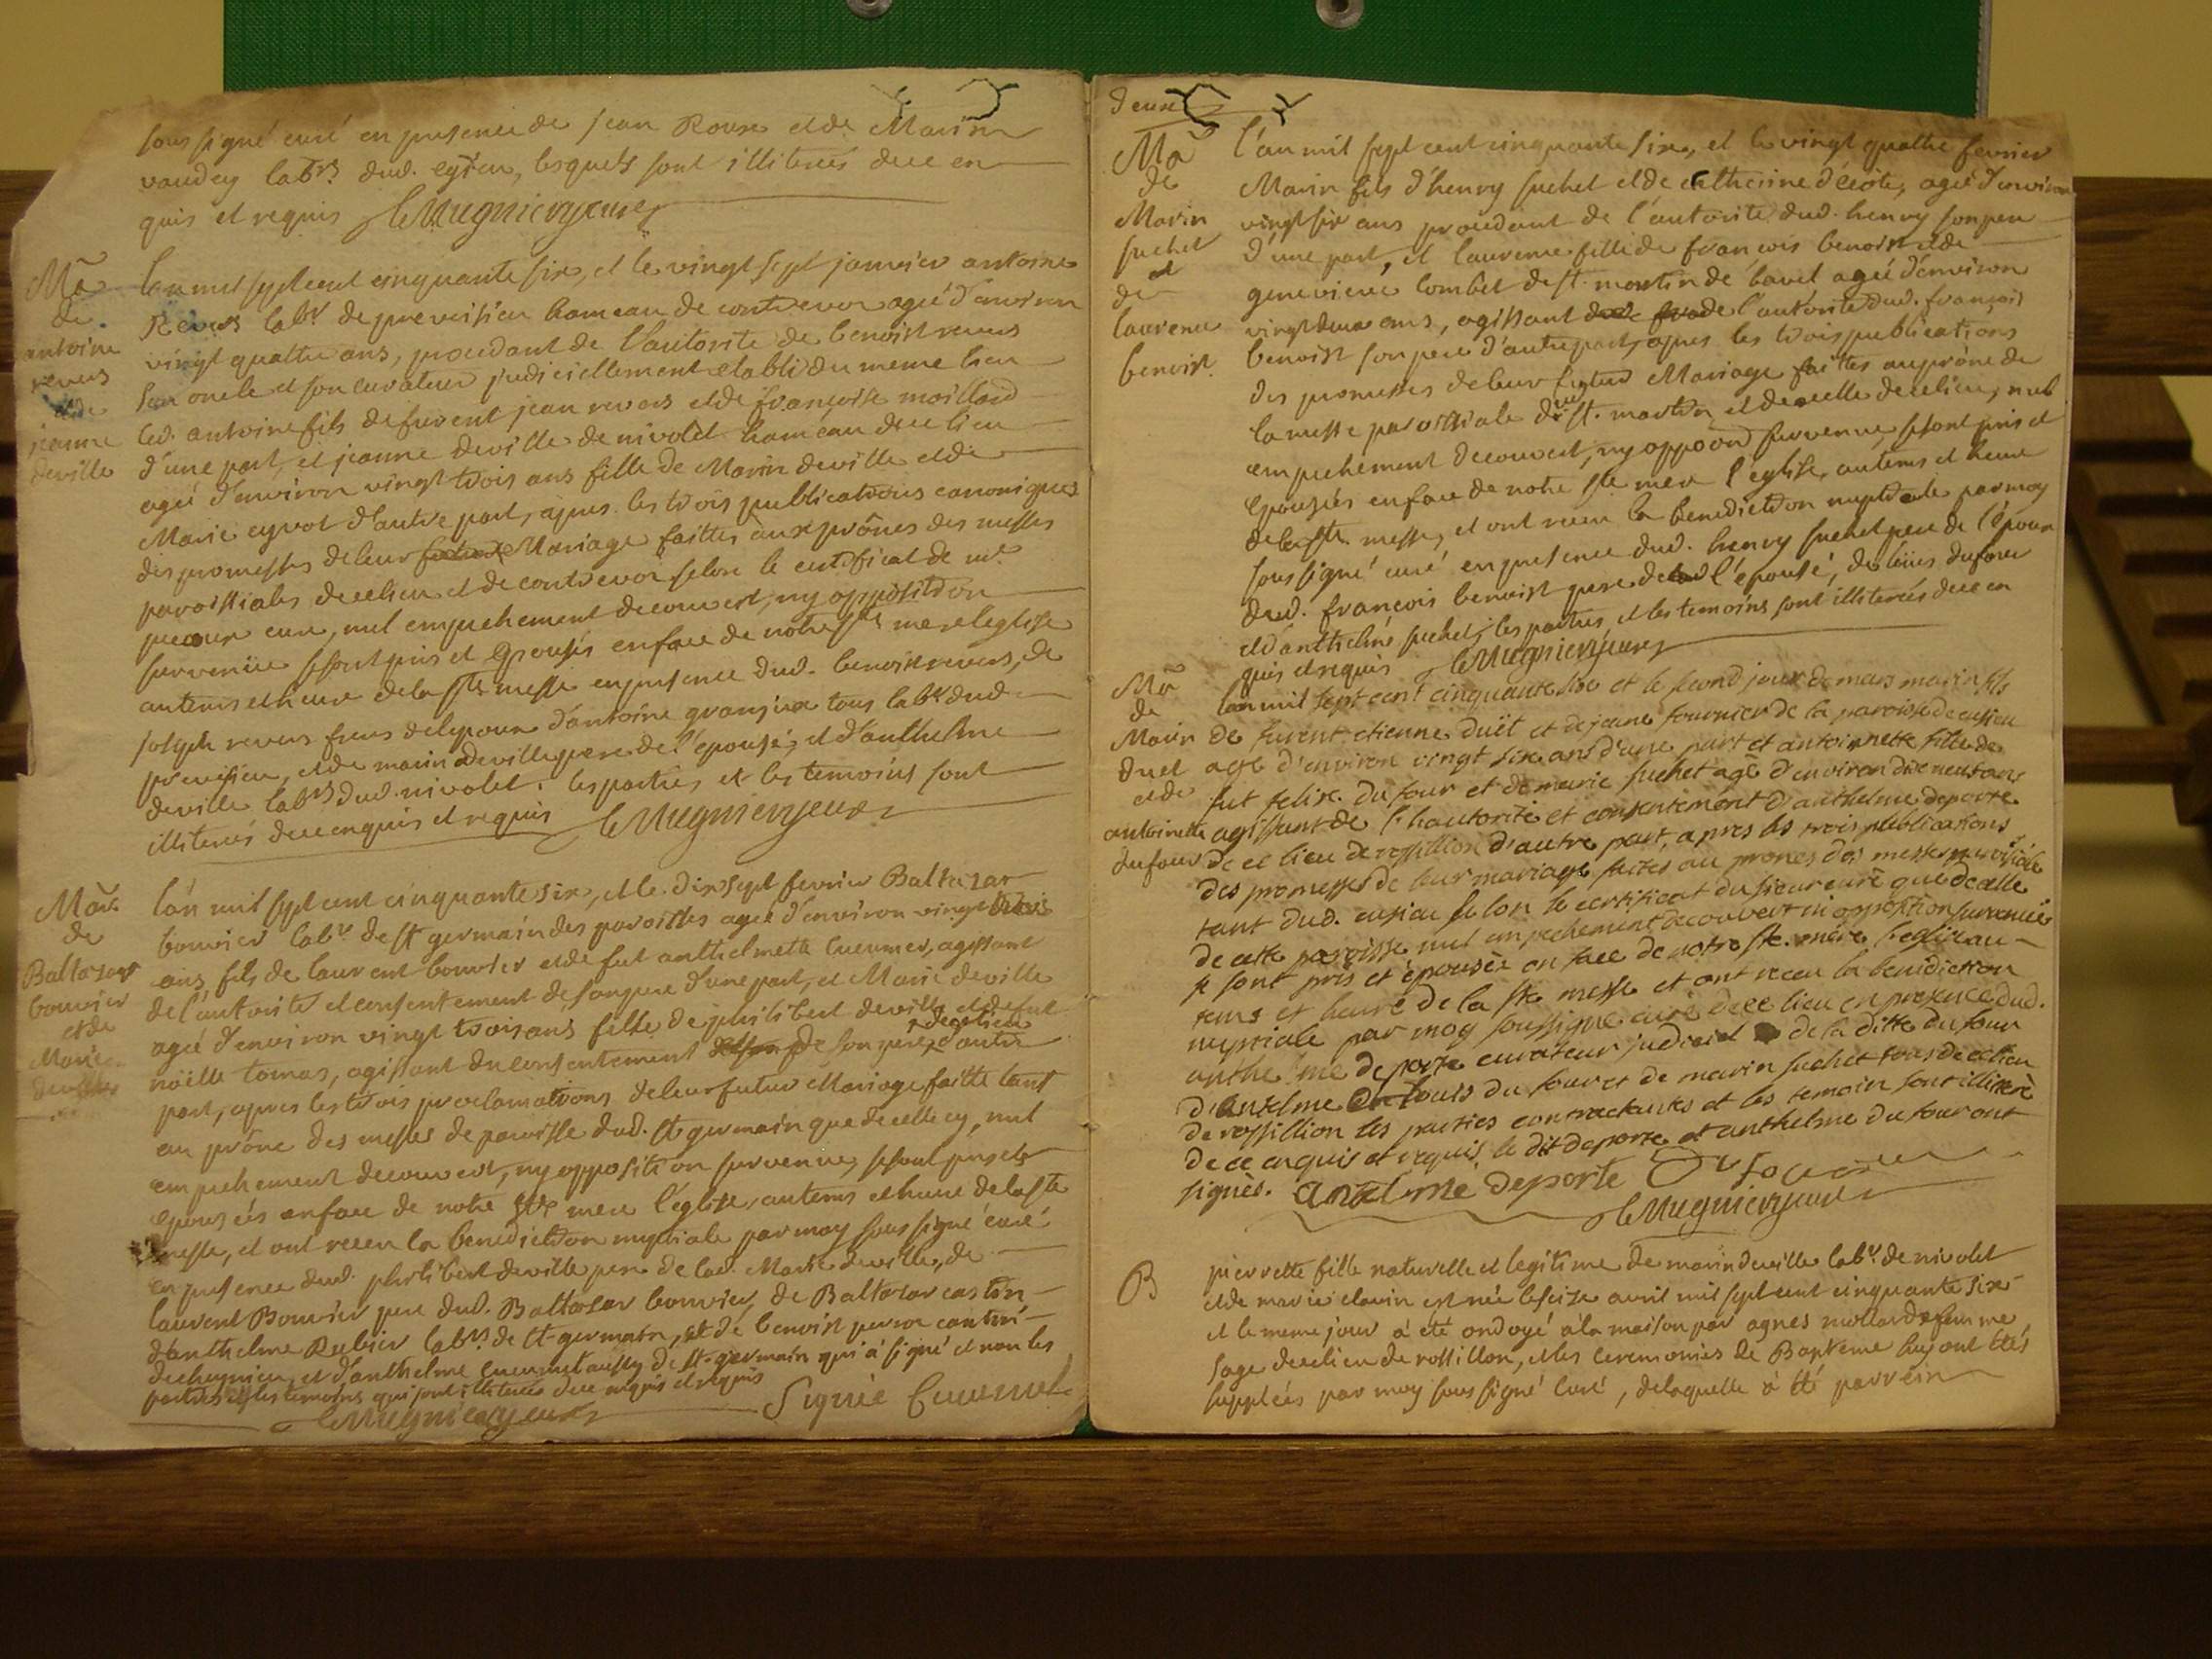 sous signé curé en presence de jean Roux et de Marin
vaudey lab.rs dud. eyieu, lesquels sont illiterés de ce en
quis et requis leMugnier curé
Mã
de
antoine
revers
et de
jeanne
deville
L'an mil sept cent cinquante six, et le vingt sept janvier antoine
Revers lab.r de premeisieu hameau de contrevoz agé d'environ
vingt quattre ans, procedant de l'autorite de benoist revers
son oncle et son curateur judiciellement etabli du meme lieu
led. antoine fils de furent jean revers et de françoise moillard
d'une part, et jeanne deville de nivolet hameau de ce lieu
agée d'environ vingt trois ans fille de Marin deville et de
Marie eyvot d'autre part, apres les trois publications canoniques
des promesses de leur Mariage faittes aux prônes des messes
paroissiales de ce lieu et de contrevoz selon le certificat de m.r
curé, nul empechement decouvert, ny opposition
survenüe se sont pris et Epousés en face de notre ste mere l'eglise
au tems et heure de la ste messe en presence dud. benoist revers, de
joseph revers freres de l'epoux d'antoine granjux tous lab.rs dud.
premesieu, et de marin deville pere de l'epousé, et d'anthelme
deville lab.rs dud. nivolet. les parties et les temoins sont
illiterés de ce enquis et requis leMugnier curé
Mãr
de
Baltazar
bouvier
et de
Marie
deville
L'an mil sept cent cinquante six, et le dix sept fevrier Baltazar
bouvier lab.r de st germain des paroisses agé d'environ vingt trois
ans fils de laurent bouvier et de fut anthelmette cueumer, agissant
de l'autorité et consentement de son pere d'une part, et Marie deville
agée d'environ vingt trois ans fille de philibert deville et de fut
noëlle tomas, agissant du consentement de son pere, de ce lieu d'autre
part, apres les trois proclamations de leur futur Mariage faitte tant
au prône des messes de paroisse dud. St germain que de celle cy, nul
empechement decouvert, ny opposition survenue, se sont pris et
epousés en face de notre Ste mere l'eglise, au tems et heure de la ste
messe, et ont receu la benediction nuptiale par moy sous signé curé
en presence dud. philibert deville pere de lad. Marie deville, de
laurent Bouvier pere dud. Baltazar bouvier, de Baltazar caston
d'anthelme Rubier lab.rs de St germain, et de benoist
de cheignieu et d'anthelme cueumel aussy de St germain qui a signé et non les
parties et les temoins qui sont illiterés de ce enquis et requis
leMugnier curé Signié Cueumel
deux
Mã
de
Marin
suchet
et
de
laurence
benoist
L'an mil sept cent cinquante six, et le vingt quattre fevrier
Marin fils d'henry suchet et de catherine d'ecôte, agé d'environ
vingt six ans procedant de l'autorite dud. henry son pere
d'une part, et laurence fille de françois benoist et de
genevieve combet de st. martin de bavel agée d'environ
vingt deux ans, agissant de l'autorite dud. françois
benoist son pere d'autre part, apres les trois publications
des promesses de leur futur Mariage faittes au prône de
la messe paroissiale dud. st. martin et de celle de ce lieu, nul
empechement decouvert, ny oppoôn survenue, se sont pris et
epousés en face de notre ste mere l'eglise, au tems et heure
de la ste. messe, et ont receu la benediction nuptiale par moy
sous signé curé en presence dud. henry suchet pere de l'époux
dud. françois benoist pere de l'épousé, de loüis dufour
et d'anthelme suchet, les parties et les temoins sont illiterés de ce en
quis et requis leMugnier curé
Mã
de
Marin
duet
et de
antoinette
dufour
L'an mil sept cent cinquante six et le second jour de mars marin fils
de furent etienne duët et de jeane fournier de la paroisse de cusieu
agé d'environ vingt six ans d'une part et antoinette fille de
fut felix du four et de marie suchet agé d'environ dix neuf ans
agissant de l'hautorité et consentement d'anthelme deporte
de ce lieu de rossillion d'autre part, apres les trois publications
des promesses de leur mariage faites au prones des messes paroissiale
tant dud. cusieu selon le certificat du sieur curé que de celle
de cette paroisse nul empechement decouvert ni opposition survenuë
se sont pris et épousée en face de notre ste. mère l'eglise au
tems et heure de la ste messe et ont receu la benidiction
nuptiale par moy soussigné curé de ce lieu en presence dud.
anthelme de porte curateur judiciel de la ditte du four
d'anselme Louis du four et de marin suchet tous de ce lieu
de rossillion les parties contractantes et les temoin sont illiteré
de ce enquis et requis le dit deporte et anthelme du four ont
signés. antelme deporte Dufour
leMugnier curé
B
pierrette fille naturelle et legitime de marin deville lab.r de nivolet
et de marie clavin est née le seize avril mil sept cent cinquante six
et le meme jour a été ondoyé a la maison par agnes mollard femme
sage de ce lieu de rossillon, et les ceremonies de Baptême luy ont étés
suppleés par moy sous signé curé, de laquelle a été parrein